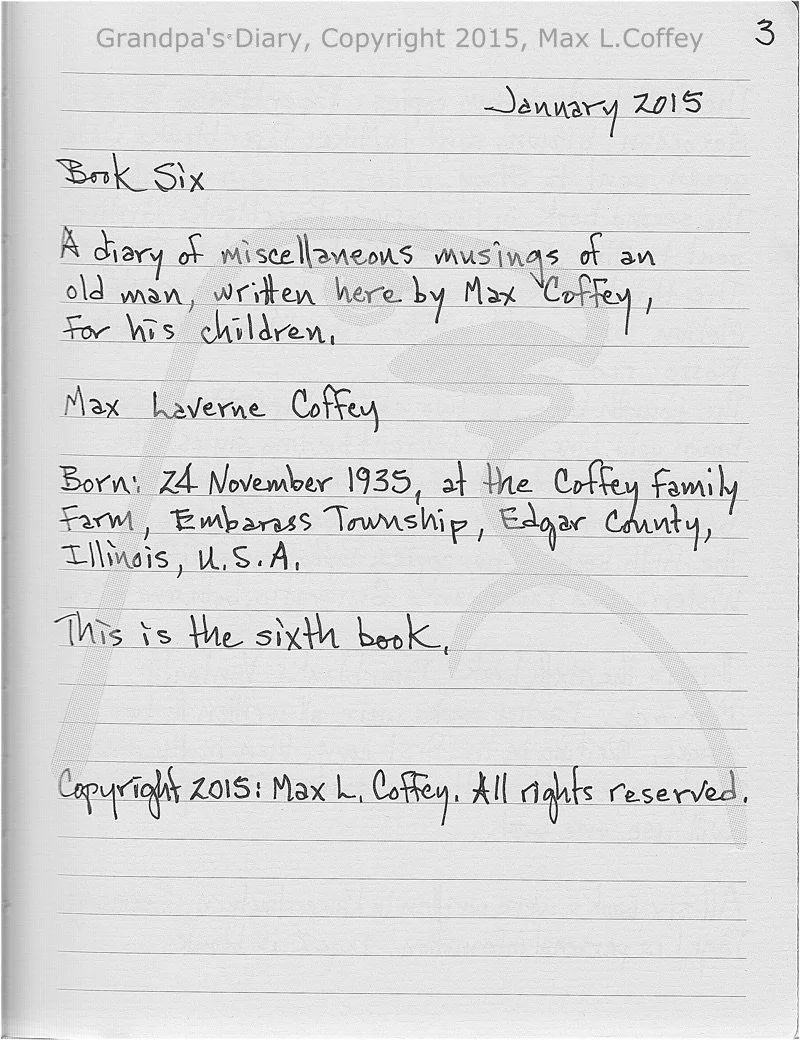 Grandpa's Diary, Copyright 2015, Max L.Coffey
3
January 2015
Book Six
A diary of miscellaneous musings of an
old man, written here by Max Coffey,
for his children.
Max Laverne Coffey
Born: 24 November 1935, at the Coffey family
farm, Embarass Township, Edgar County,
Illinois, U.S.A.
This is the sixth book.
Copyright 2015: Max L. Coffey. All rights reserved.